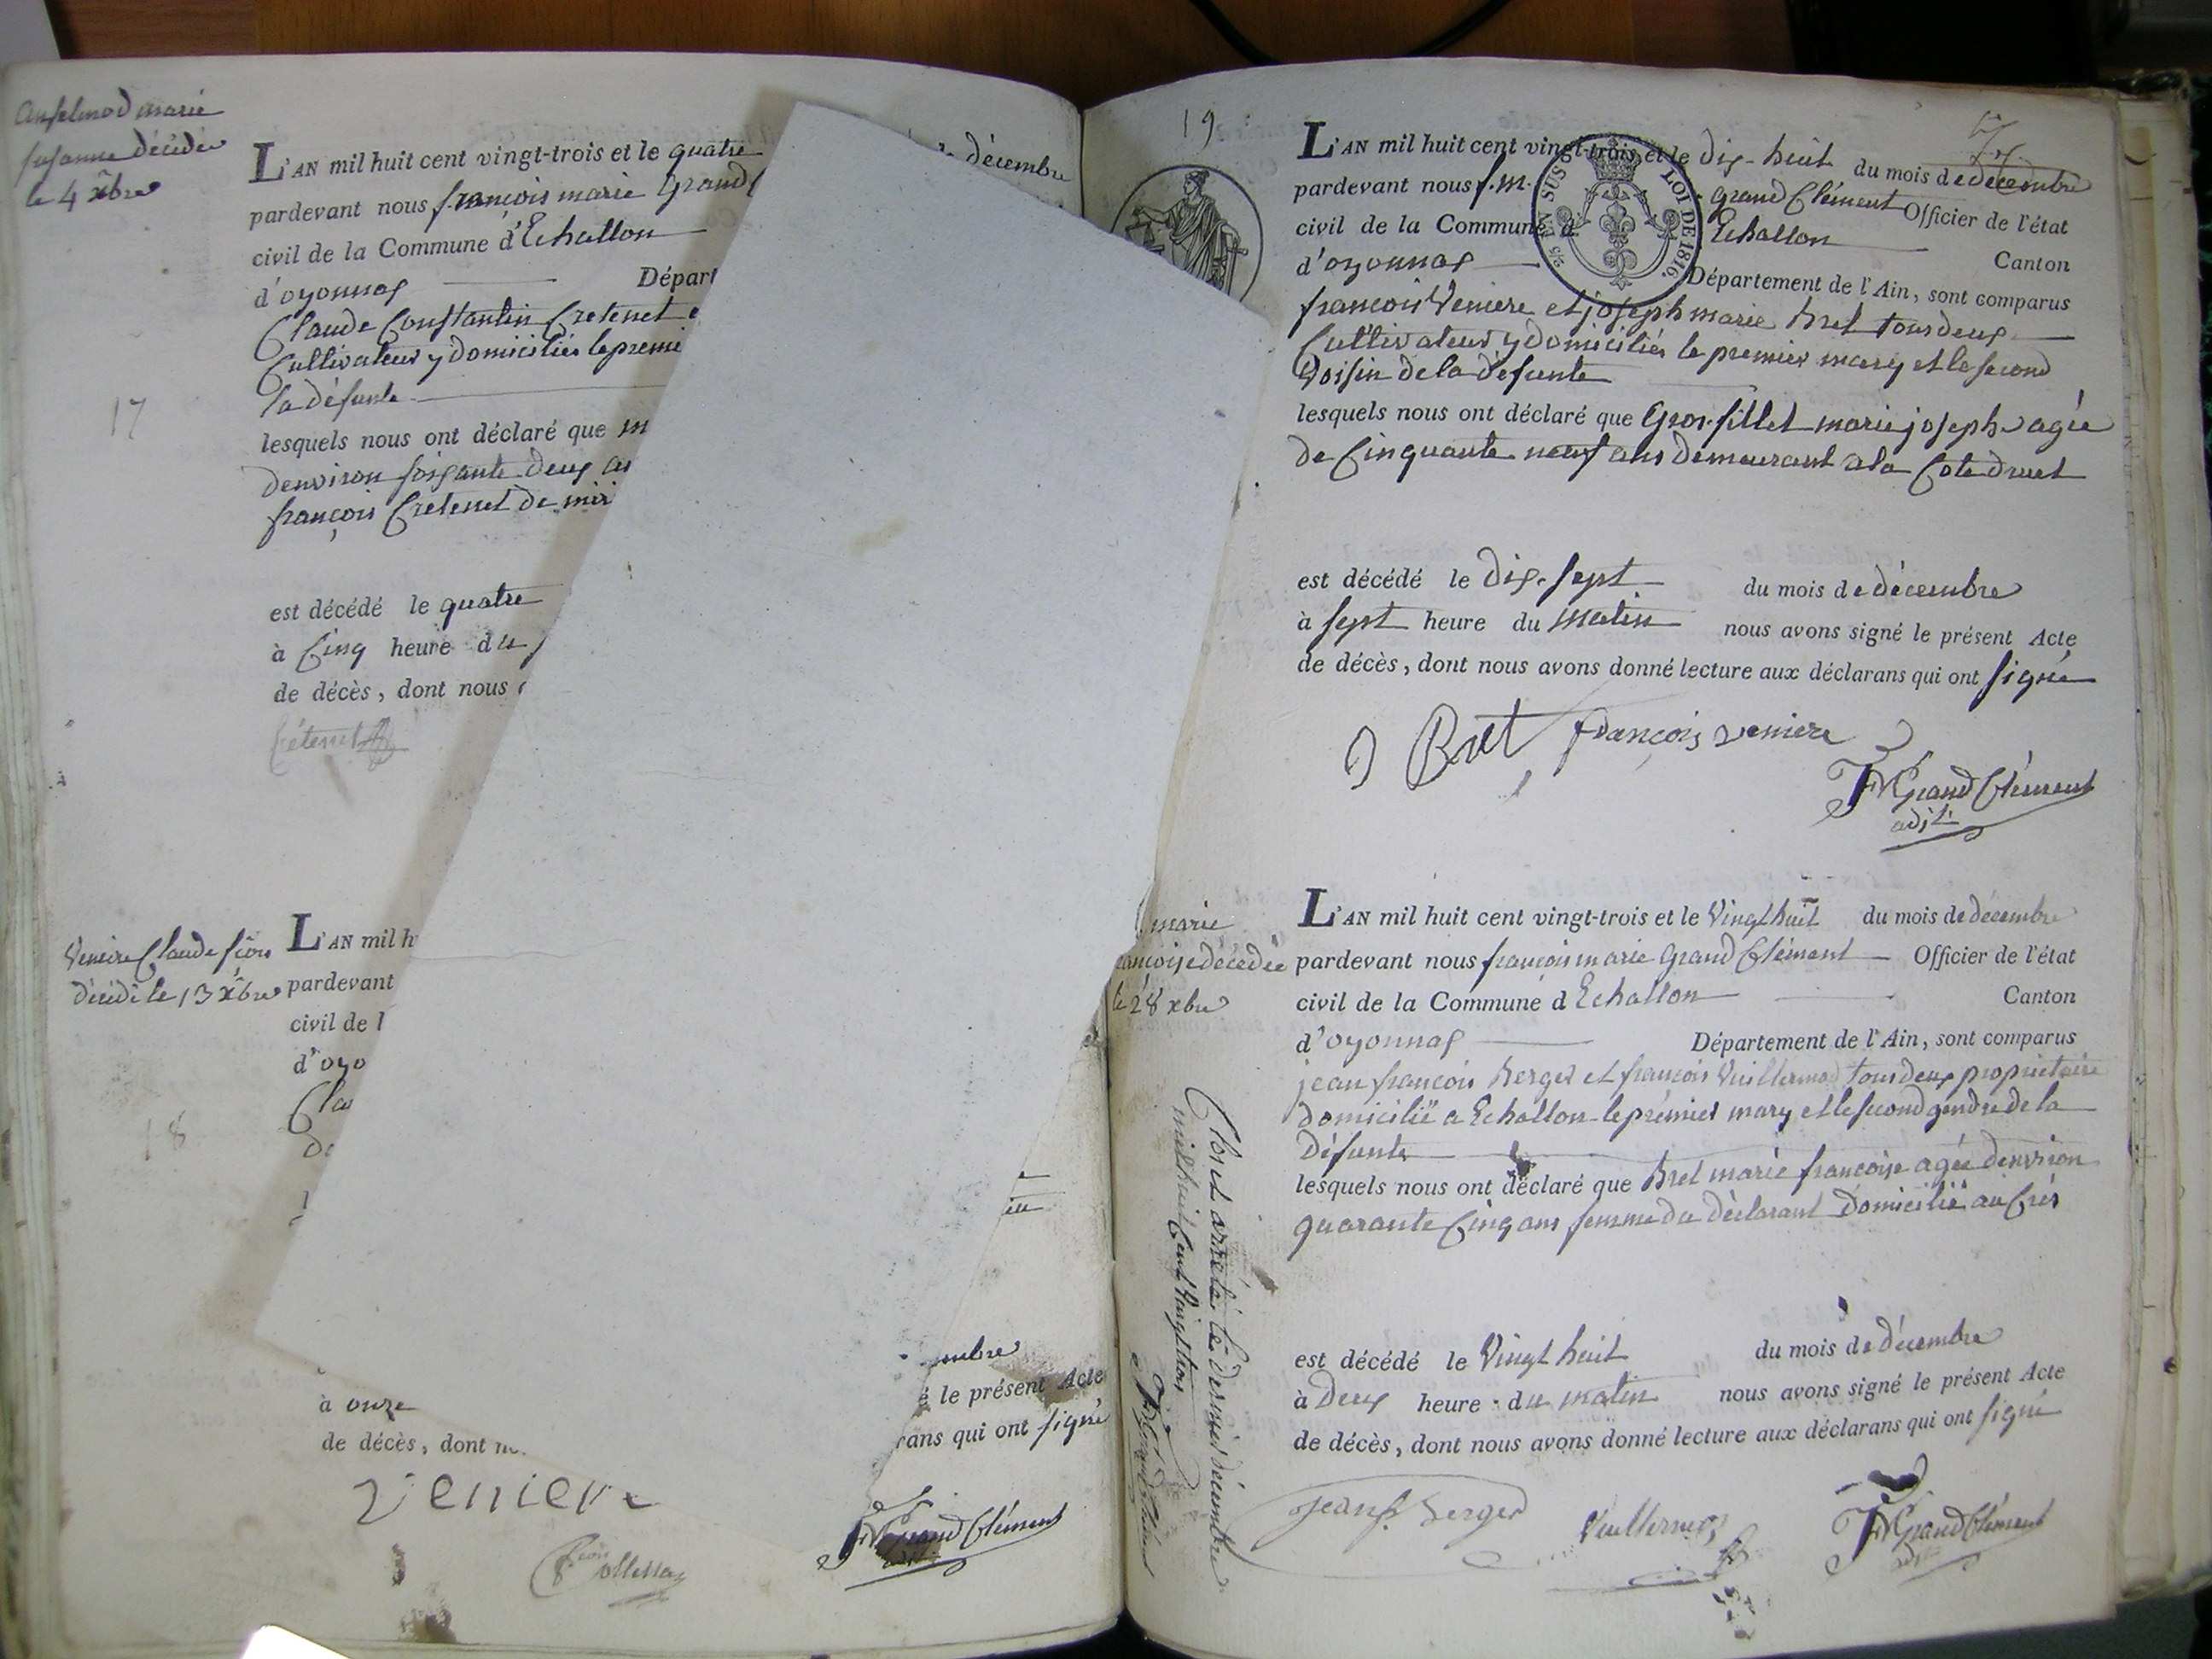 Anselmod marie
susanne décédée
le 4 xbre
L'AN mil huit cent vingt-trois et le quatre
décembre
pardevant nous françois marie Grand
civil de la Commune d'Echallon
d'oyonnax Départ
Claude Constantin Cretenet e
Cultivateur y domiciliés le premi
la défunte
17
lesquels nous ont déclaré que m
denviron soixante deux an
françois Cretenet de
est décédé le quatre
à Cinq heure du
de décès, dont nous
Crétenet
Veniere Claude
décédé le 13 xbre
L'AN mil h
pardevant
civil de l
d'oyo
Cla
18
embre
à onze
é le présent Acte
de décès, dont n
rans qui ont signé
Veniere
FM Grand Clément
adjt.
19
L'AN mil huit cent vingt-trois et le dix-huit du mois de décembre
pardevant nous f. m. grand Clément Officier de l'état
civil de la Commune d Echallon Canton
d'oyonnax Département de l'Ain, sont comparus
LOI DE 1816.
françois Veniere et joseph marie Bret tous deux
Cultivateur y domiciliés le premier mary et le second
Voisin de la défunte
lesquels nous ont déclaré que Gros-fillet marie joseph agée
de Cinquante neuf ans demeurant a la Cote druet
est décédé le dix-sept du mois de décembre
à sept heure du Matin nous avons signé le présent Acte
de décès, dont nous avons donné lecture aux déclarans qui ont signé
J Bret françois veniere
FM Grand Clément
adjt.
marie
ançoise décédée
le 28 xbre
Clos et arrêté le dernier décembre
mil huit Cent Vingt trois
FM Grand Clément
L'AN mil huit cent vingt-trois et le Vingt huit du mois de décembre
pardevant nous françois marie Grand Clément Officier de l'état
civil de la Commune d Echallon Canton
d'oyonnax Département de l'Ain, sont comparus
jean françois Berger et françois Vuillermoz tous deux propriétaire
domicilié a Echallon le premier mary et le second gendre de la
Défunte
lesquels nous ont déclaré que Bret marie françoise agée denviron
quarante Cinq ans femme du déclarant Domicilié au Crés
est décédé le Vingt huit du mois de décembre
à Deux heure du matin nous avons signé le présent Acte
de décès, dont nous avons donné lecture aux déclarans qui ont signé
Jean f. Berger Vuillermoz
FM Grand Clément